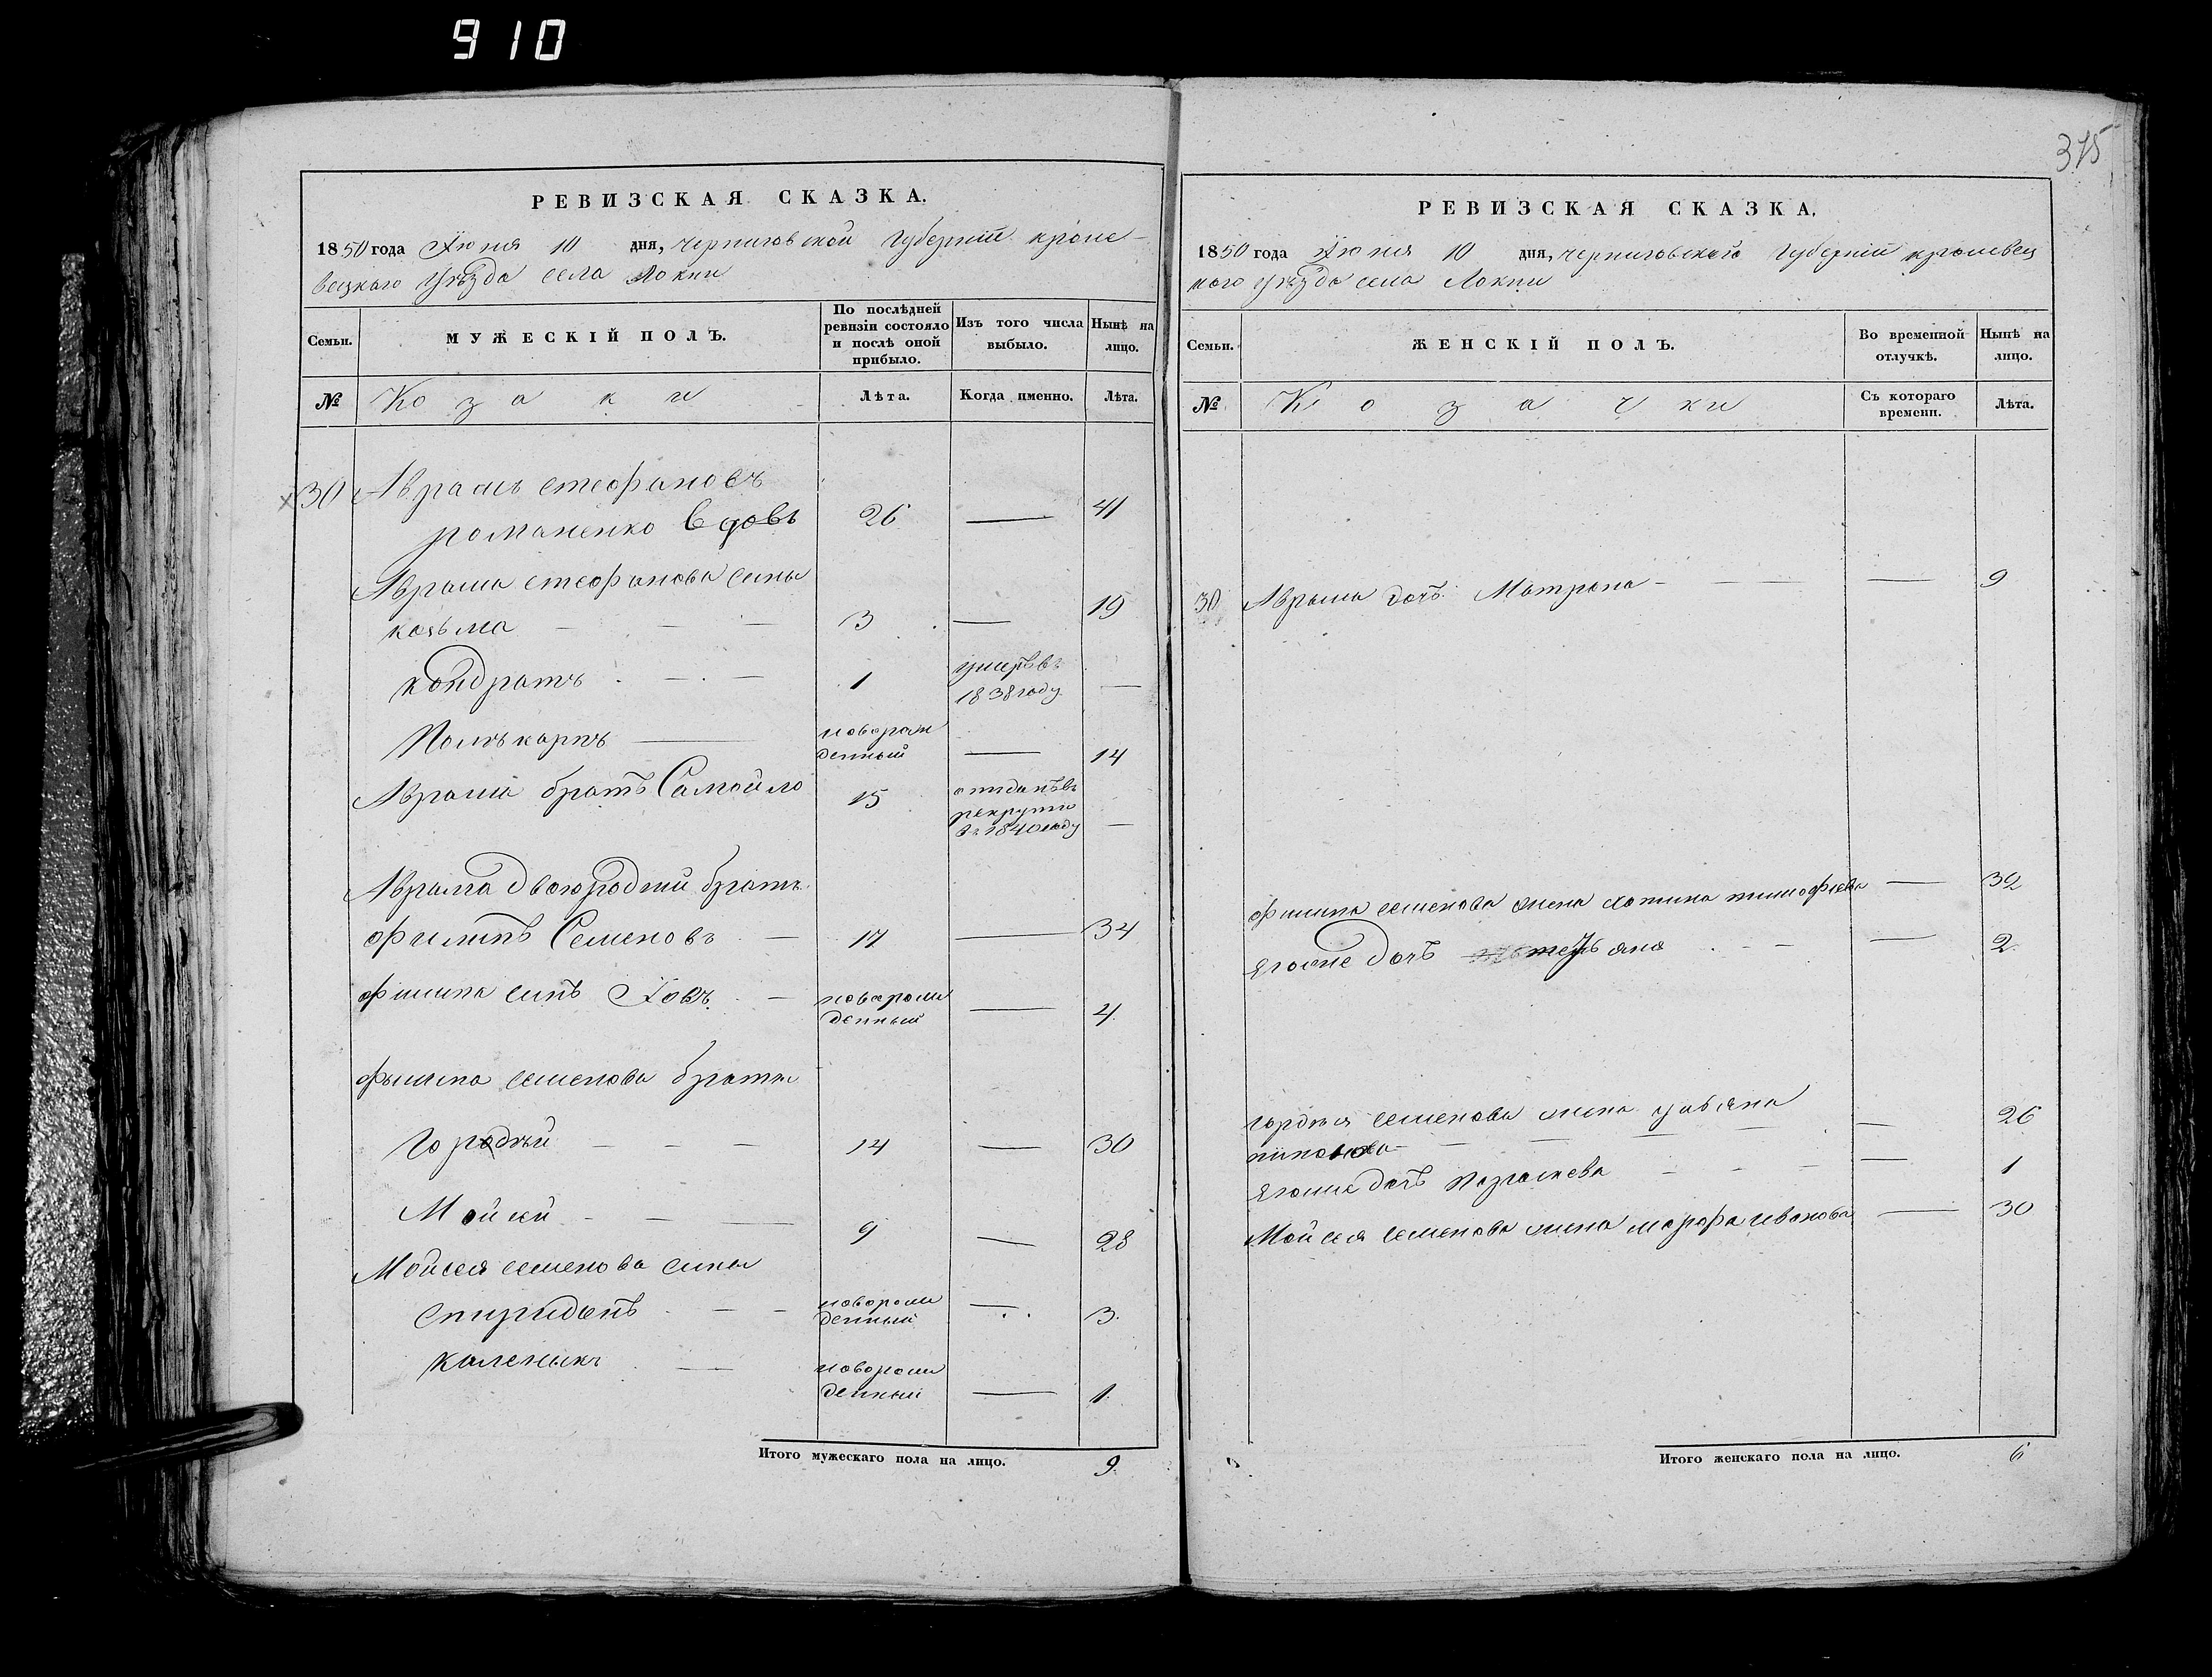 910
375
РЕВИЗСКАЯ СКАЗКА.
1850 года Іюня 10 дня, черниговской Губерніи кроле-
вецкаго Уѣзда села Локни
Семьи.
МУЖЕСКІЙ ПОЛЪ.
По послѣдней ревизіи состояло и послѣ оной прибыло.
Изъ того числа выбыло.
Нынѣ на лицо.
№
Козаки
Лѣта.
Когда именно.
Лѣта.
30 Аврамъ стефановъ
романенко вдовъ 26 — 41
Аврама стефанова сины
козьма — — — 3 — 19
кондратъ — — 1 умеръ въ 1838 году —
Поликарпъ — новорож денный — 14
Аврама братъ Самойло 15 отданъ въ рекруты въ 1840 году —
Аврама двоюродни братъ
филипъ Семеновъ — 17 — 34
филипа синъ Іовъ — новорож денный — 4
филипа семенова браты
Гордѣй — — — 14 — 30
Мойсей — — — 9 — 28
Мойсея семенова сины
спиридонъ — — новорож денный — 3.
каленыкъ — новорож денный — 1.
Итого мужескаго пола на лицо. 9.
РЕВИЗСКАЯ СКАЗКА.
1850 года Іюня 10 дня, черниговскаго Губерніи кролевец
кого уѣзда села Локни
Семьи.
ЖЕНСКІЙ ПОЛЪ.
Во временной отлучкѣ.
Нынѣ на лицо.
№
Козачки
Съ котораго времени.
Лѣта.
30 Аврама дочъ Матрона — — — — 9
филипа семенова жена хотина тимофѣева — 32
ягоже дочъ тетьяна — — — 2.
гордѣя семенова жена ульяна
— — — — — 26
ягоже дочъ — — — — 1
Мойсея семенова жена марфа иванова — 30
Итого женскаго пола на лицо. 6